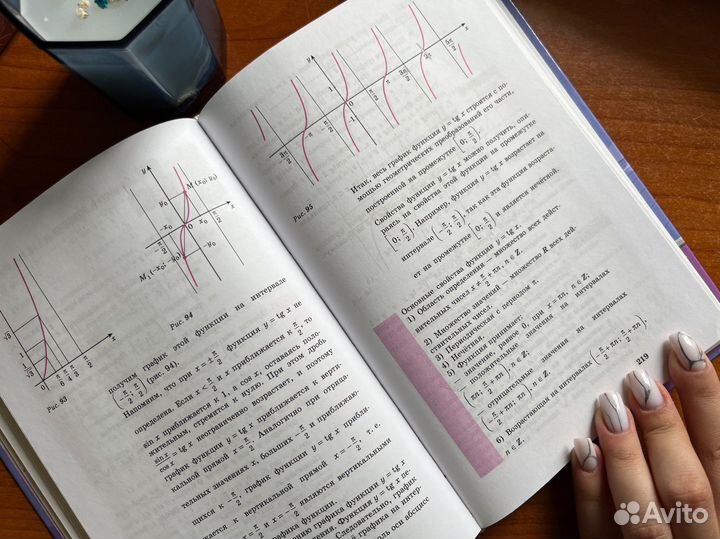 y
M (x₀; y₀)
y₀
-x₀
x₀
π/2
x
-y₀
M₁(-x₀; -y₀)
Рис. 94
√3
1
0
π/6
π/4
π/3
π/2
x
Рис. 93
получим график этой функции на интервале
(-π/2; π/2) (рис. 94).
Напомним, что при x = ±π/2 функция y = tg x не
определена. Если x < π/2 и x приближается к π/2, то
sin x приближается к 1, а cos x, оставаясь поло-
жительным, стремится к нулю. При этом дробь
sin x/cos x = tg x неограниченно возрастает, и поэтому
график функции y = tg x приближается к верти-
кальной прямой x = π/2. Аналогично при отрица-
тельных значениях x, больших -π/2 и приближаю-
щихся к -π/2, график функции y = tg x прибли-
жается к вертикальной прямой x = -π/2, т. е.
и x = -π/2 являются вертикальными
графика функции.
графику функции y = tg x
Функция y = tg x не-
Следовательно, график
графика на интер-
оси абсцисс
y
1
-1
0
π/2
π
3π/2
2π
5π/2
x
Рис. 95
Итак, весь график функции y = tg x строится с по-
мощью геометрических преобразований его части,
построенной на промежутке [0; π/2).
Свойства функции y = tg x можно получить, опи-
раясь на свойства этой функции на промежутке
[0; π/2). Например, функция y = tg x возрастает на
интервале (-π/2; π/2), так как эта функция возраста-
ет на промежутке [0; π/2) и является нечётной.
Основные свойства функции y = tg x.
1) Область определения — множество всех дейст-
вительных чисел x ≠ π/2 + πn, n ∈ Z.
2) Множество значений — множество R всех дей-
ствительных чисел.
3) Периодическая с периодом π.
4) Нечётная.
5) Функция принимает:
значение, равное 0, при x = πn, n ∈ Z;
положительные значения на интервалах
(πn; π/2 + πn), n ∈ Z;
отрицательные значения на интервалах
(-π/2 + πn; πn), n ∈ Z.
6) Возрастающая на интервалах (-π/2 + πn; π/2 + πn),
n ∈ Z.
219
Avito